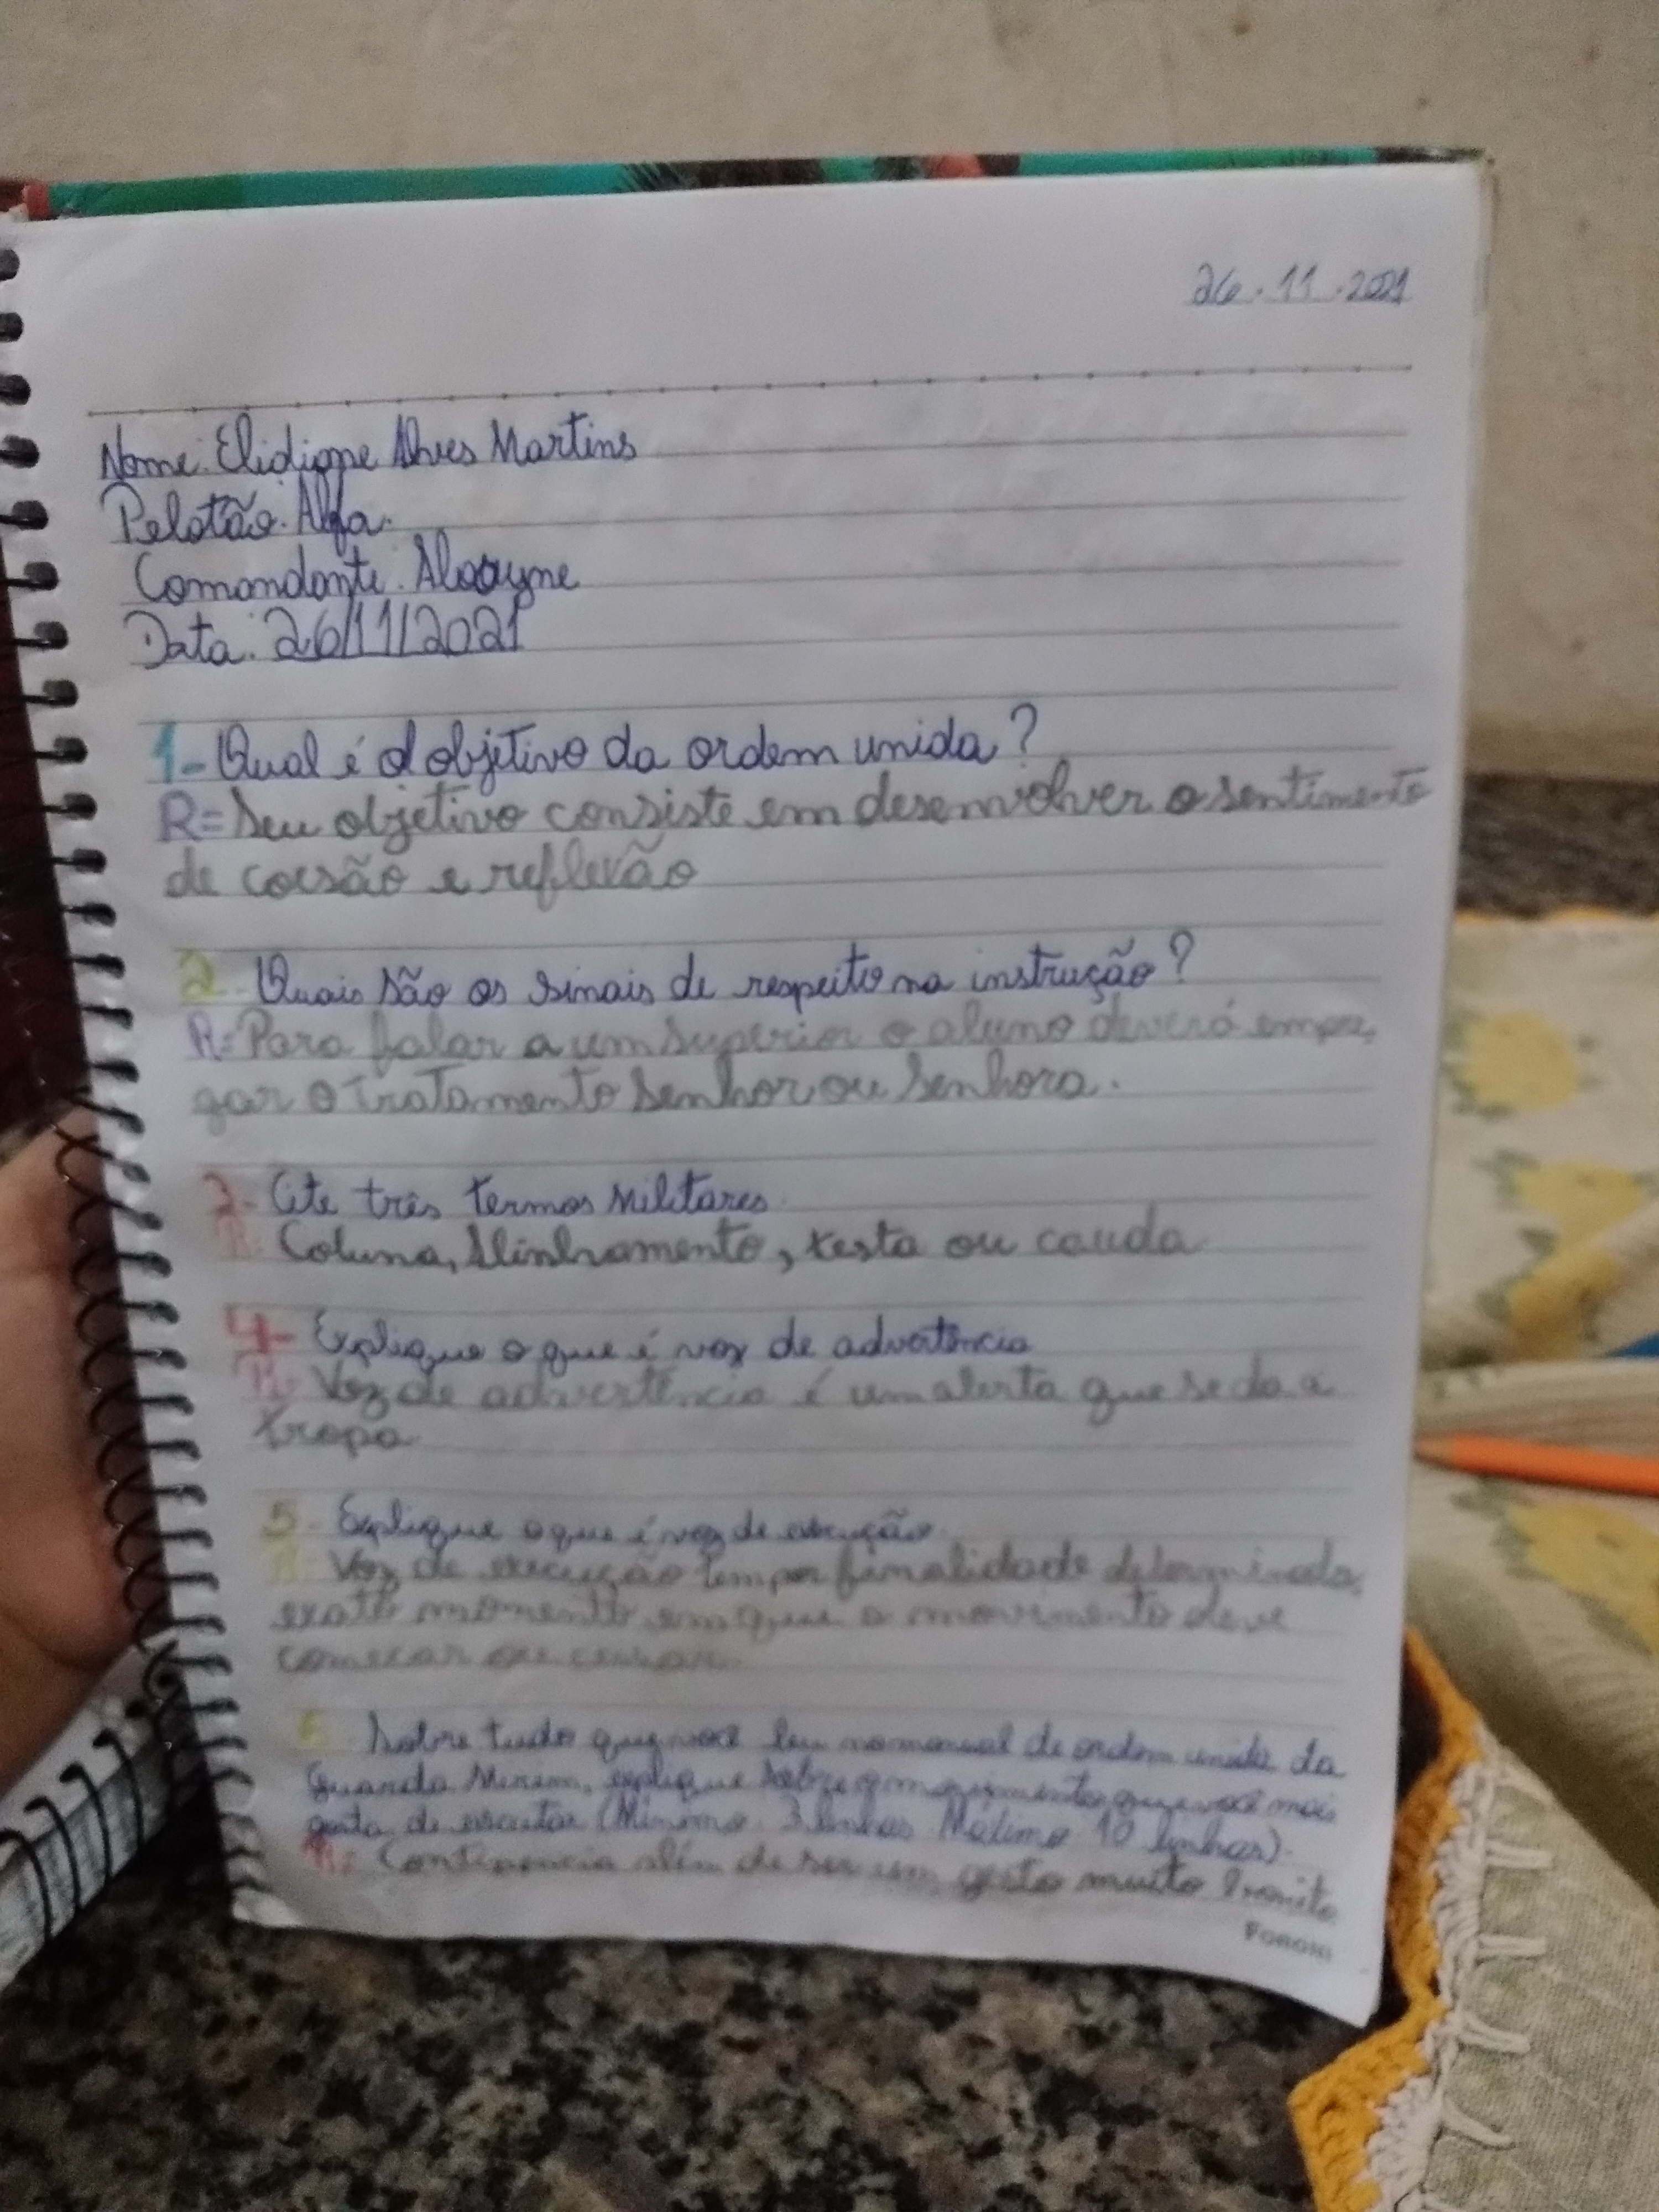 26.11.2021
Nome: Elidiane Alves Martins
Pelotão: Alfa.
Comandante:
Data: 26/11/2021
1- Qual é o objetivo da ordem unida?
R= Seu objetivo consiste em desenvolver o sentimento
de coesão e reflexão
2- Quais são os sinais de respeito na instrução?
R= Para falar a um superior o aluno deverá empre,
gar o tratamento Senhor ou Senhora.
3- Cite três termos Militares
R: Coluna, Alinhamento, testa ou cauda
4- Explique o que é voz de advertência
R: Voz de advertência é um alerta que se da a
tropa
5- Explique o que é voz de execução
R: Voz de execução tem por finalidade determinado,
exato momento em que o movimento deve
começar ou cessar.
6 Sobre tudo que você leu no manual de ordem unida da
Guarda Mirim, explique sobre que você mais
gosta de executar (Mínimo 3 linhas Máximo 10 linhas).
R: Continencia além de ser um gesto muito bonito
FORONI